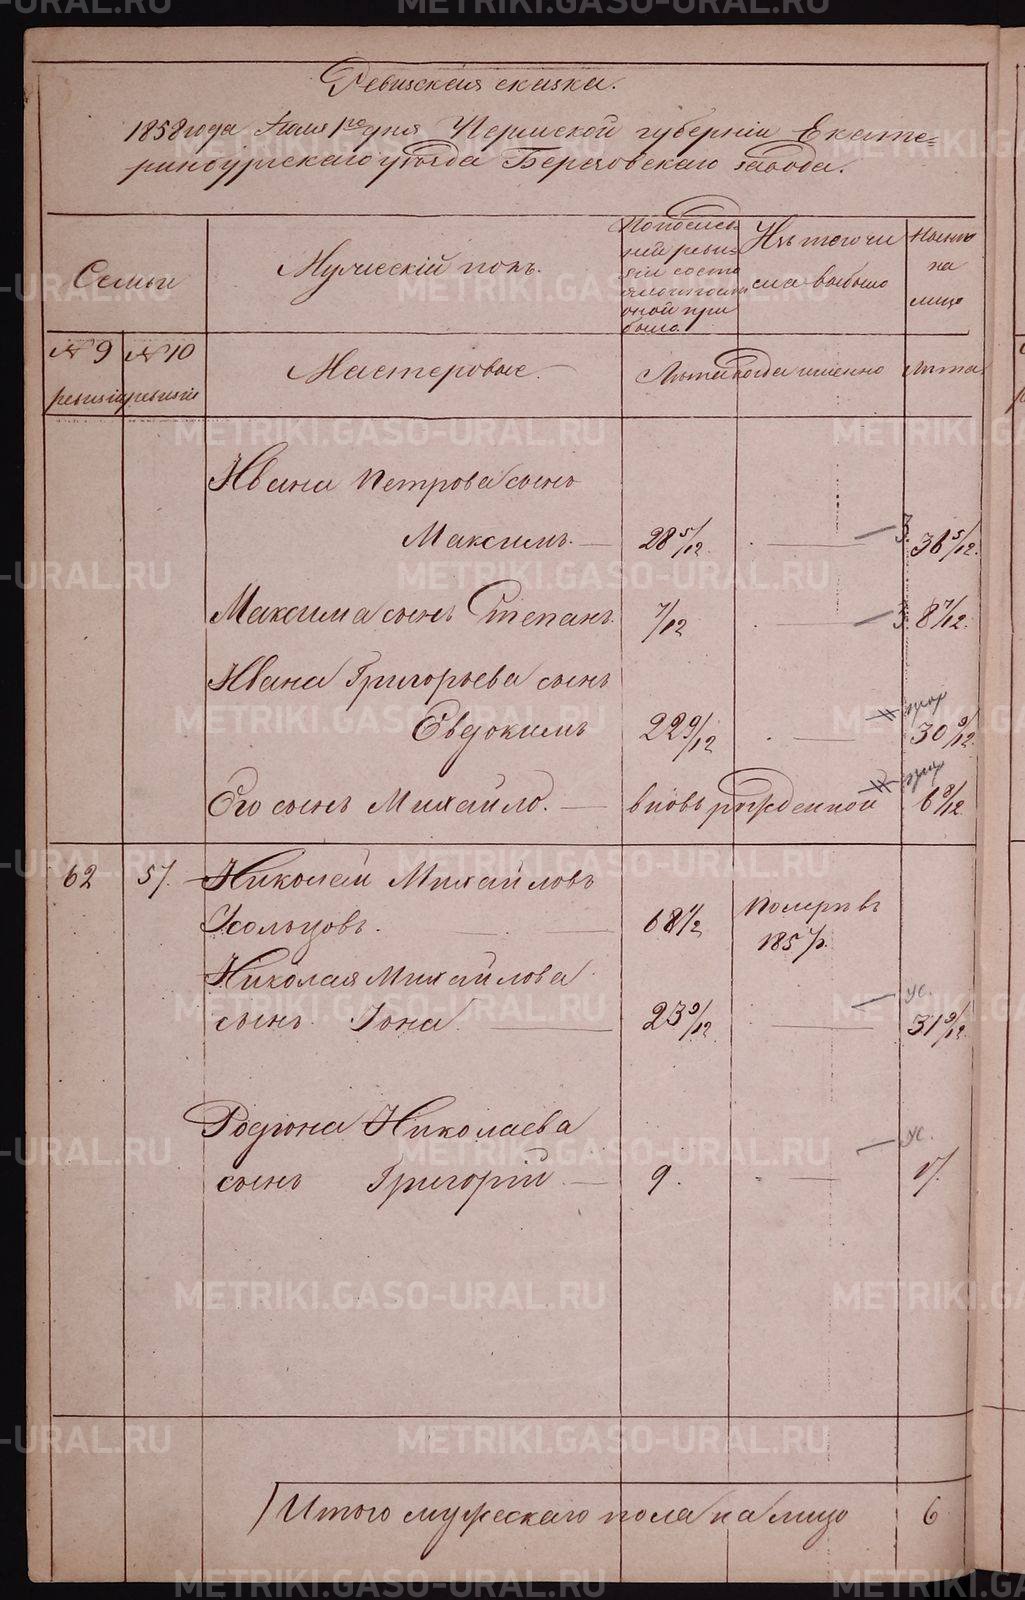 Ревизская сказка.
1858 года Июля 1го дня Пермской губернии Екате=
ринбургскаго уѣзда Березовскаго завода.
Семьи
Мужескій полъ.
По послѣд
ней реви
зіи состо
яло и послѣ
оной при
было.
Изъ того чи
сла выбыло
Нынѣ
на
лицо
№ 9
ревизіи
№ 10
ревизіи
Мастеровые.
Лѣта
когда именно
Лѣта
Ивана Петрова сынъ
Максимъ. — 28 5/12. — 3. 36 5/12.
Максима сынъ Степанъ. 7/12 — 3. 8 7/12.
Ивана Григорьева сынъ
Евдокимъ 22 9/12 — 30 9/12.
Его сынъ Михайло. — вновь рожденной 6 8/12
62 57. Николай Михайловъ
Хольцовъ. — 68 1/2 Померъ въ
185 7/р.
Николая Михайлова
сынъ Іона. — 23 9/12 — ус. 31 9/12.
Родіона Николаева
сынъ Григорій. — 9. — ус. 17.
Итого мужескаго пола на лицо 6
METRIKI.GASO-URAL.RU